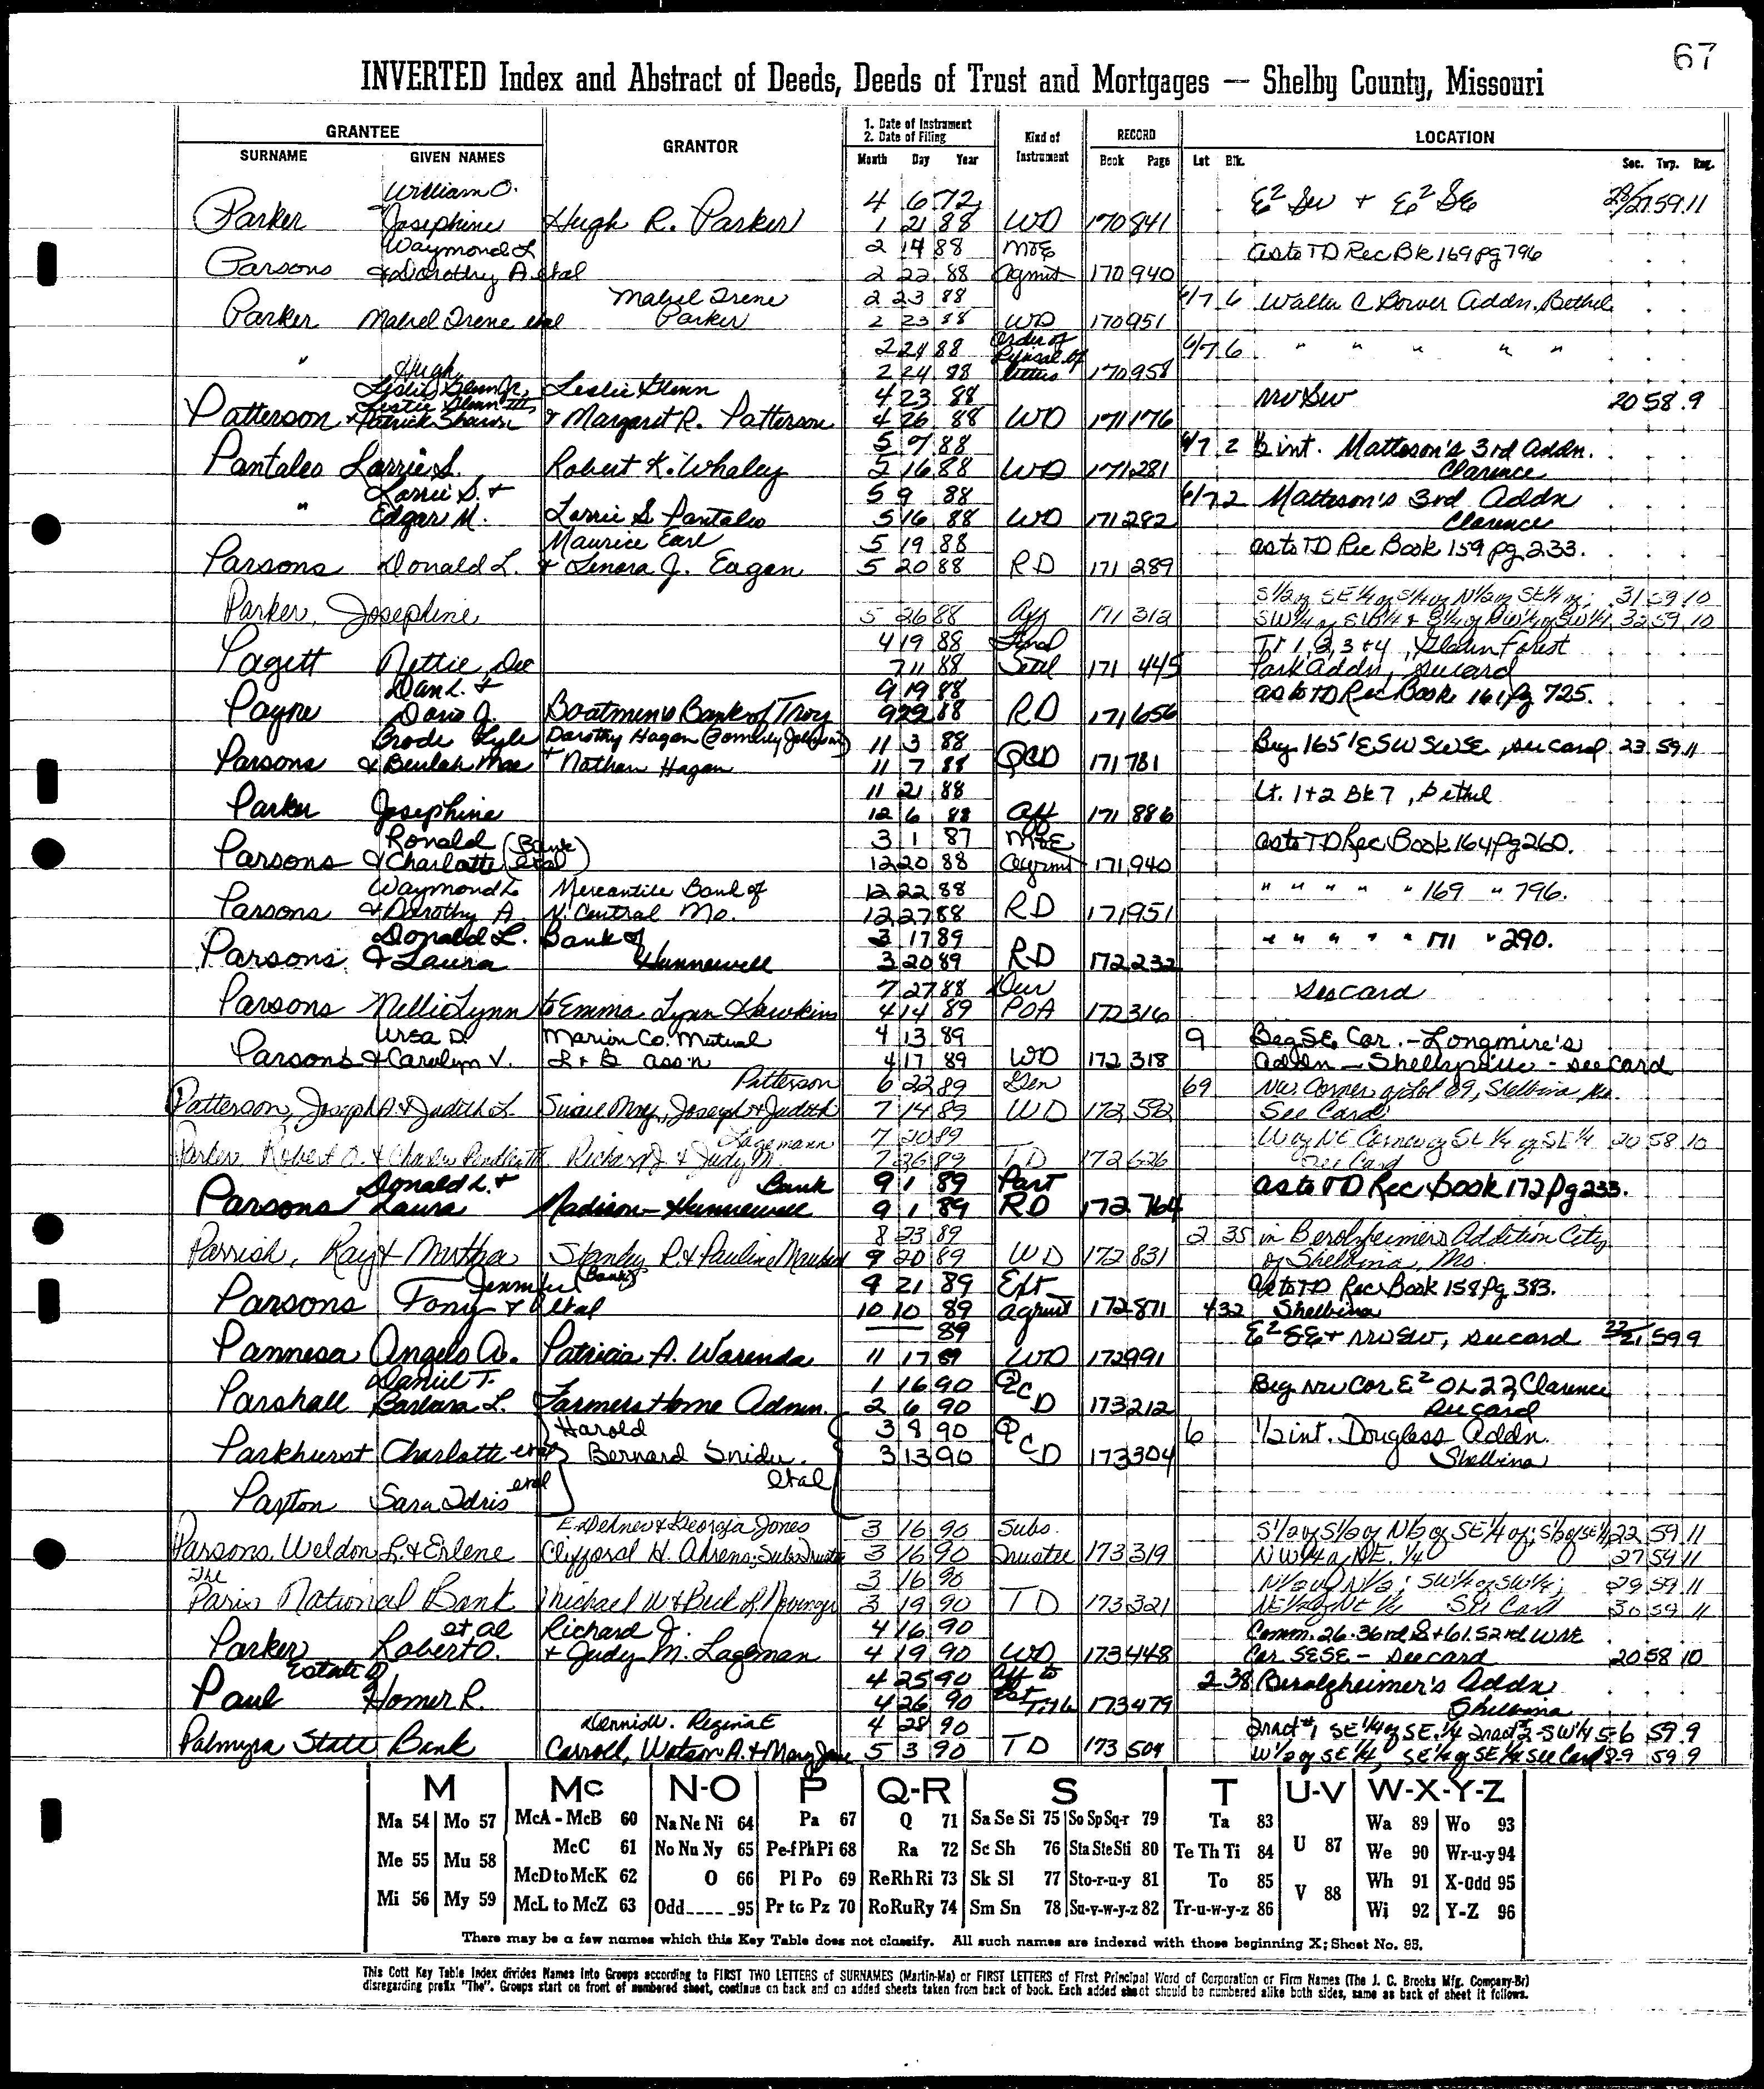 67
INVERTED Index and Abstract of Deeds, Deeds of Trust and Mortgages — Shelby County, Missouri
GRANTEE GRANTOR 1. Date of Instrument 2. Date of Filing Kind of Instrument RECORD LOCATION
SURNAME GIVEN NAMES Month Day Year Book Page Lot Blk. Sec. Twp. Rng.
William O. 4 6 72 E² SW + E² SE 59 11
Parker Josephine Hugh R. Parker 1 21 88 WD 170 841
Waymond L 2 14 88 MOE as to TD Rec Bk 169 pg 796
Parsons & Dorothy A etal 2 22 88 agmnt 170 940
Mabel Irene 2 23 88 6/7 6 Walter C Bower Addn, Bethel
Parker Mabel Irene etal Parker 2 23 88 WD 170 951
2 24 88 Order of 6/7 6 " " " " "
" Hugh 2 24 88 Refusal of letters 170 958
Leslie Glenn Jr, Leslie Glenn 4 23 88 NW SW 20 58 9
Leslie Glenn III,
Patterson & Patrick Shawn & Margaret R. Patterson 4 26 88 WD 171 176
5 9 88 6/7 2 ½ int. Matteson's 3rd Addn.
Pantaleo Larrie S. Robert K. Whaley 5 16 88 WD 171 281 Clarence
Larrie S. + 5 9 88 6/7 2 Matteson's 3rd Addn
" Edgar M. Larrie S. Pantaleo 5 16 88 WD 171 282 Clarence
Maurice Earl 5 19 88 as to TD Rec Book 159 pg 233.
Parsons Donald L. & Lenora J. Eagan 5 20 88 RD 171 289
31 59 10
Parker, Josephine 5 26 88 Aff 171 312 32 59 10
4 19 88 Final Tr 1, 2, 3 + 4, Forest
Pagett Nettie Dee 7 11 88 Setl 171 445 Park Addn, see card
Dan L. + 9 19 88 as to TD Rec Book 161 pg 725.
Payne Doris J. Boatmens Bank of Troy 9 22 88 RD 171 656
Brode Lyle Dorothy Hagan (formerly Johnson) 11 3 88 Beg. 165' E SW SW SE, see card 23 59 11
Parsons & Beulah Mae + Nathan Hagan 11 7 88 QCD 171 781
11 21 88 Lt. 1+2 Bk 7, Bethel
Parker Josephine 12 6 88 Aff 171 886
Ronald (Bank 3 1 87 MOE as to TD Rec Book 164 pg 260.
Parsons & Charlotte etal) 12 20 88 Agrmt 171 940
Waymond L Mercantile Bank of 12 22 88 " " " " " 169 " 796.
Parsons & Dorothy A. N. Central Mo. 12 27 88 RD 171 951
Donald L. Bank of 3 17 89 " " " " " 171 " 290.
Parsons & Laura Hunnewell 3 20 89 RD 172 232
7 27 88 Dur see card
Parsons Nellie Lynn to Emma Lynn Hawkins 4 14 89 POA 172 316
Ursa D. Marion Co. Mutual 4 13 89 9 Beg SE Cor. - Longmire's
Parsons & Carolyn V. L + B ass'n 4 17 89 WD 172 318 Addn - Shelbyville - see card
Patterson 6 22 89 Gen 69 NW. Corner of Lot 69, Shelbina Mo.
Patterson, Joseph A. & Judith L. Susie May, Joseph & Judith 7 14 89 WD 172 592 See Card
Lagemann 7 20 89 W of NE Corner of SE ¼ of SE ¼ 20 58 10
Parker Robert O. & Charles Richard J & Judy M. 7 26 89 TD 172 626 See Card
Donald L. + Bank 9 1 89 Part as to TD Rec Book 172 pg 233.
Parsons Laura Madison - Hunnewell 9 1 89 RD 172 764
8 23 89 2 35 in Berolzheimers Addition City
Parrish, Ray & Martha Stanley P. & Pauline 9 20 89 WD 172 831 of Shelbina, Mo.
Jennifer (Bank) 9 21 89 Ext as to TD Rec Book 158 pg 383.
Parsons Tony + etal 10 10 89 agrmt 172 871 4 32 Shelbina
— 89 E² SE + NW SW, see card 22/21 59 9
Pannesa Angelo A. Patricia A. Warenda 11 17 89 WD 172 991
Daniel T. 1 16 90 Beg NW Cor E² OL 22, Clarence
Parshall Barbara L. Farmers Home Admn. 2 6 90 QCD 173 212 see card
Harold 3 8 90 6 ½ int. Douglass Addn.
Parkhurst Charlotte etal Bernard Snider 3 13 90 QCD 173 304 Shelbina
Paxton Sara Idris etal etal
E. Delnes & Georgia Jones 3 16 90 Subs. S½ of S½ of N½ of SE¼ of; S½ of SE¼ 22 59 11
Parsons, Weldon L. & Erlene Clifford H. Ahrens, Subs Trustee 3 16 90 Trustee 173 319 NW¼ of NE ¼ 27 59 11
The 3 16 90 N½ of N½; SW¼ of SW¼; 29 59 11
Paris National Bank Michael W & 3 19 90 TD 173 321 NE¼ of NE ¼ See Card 30 59 11
et al Richard J. 4 16 90 Comm. 26.36 rd S + 61.52 rd W NE
Parker Robert O. + Judy M. Lageman 4 19 90 WD 173 448 Cor. SE SE - see card 20 58 10
Estate of 4 25 90 Aff to 2 38 Berolzheimer's Addn
Paul Homer R. 4 26 90 Est Title 173 479 Shelbina
Dennis W. Regina E 4 28 90 Tract #1 SE ¼ of SE ¼ Tract 2 SW¼ 5-6 59 9
Palmyra State Bank Carroll, Watson A. & Mary Jane 5 3 90 TD 173 504 W½ of SE ¼, SE ¼ of SE ¼ See Card 8-9 59 9
M Mc N-O P Q-R S T U-V W-X-Y-Z
Ma 54 Mo 57 McA - McB 60 Na Ne Ni 64 Pa 67 Q 71 Sa Se Si 75 So Sp Sq-r 79 Ta 83 U 87 Wa 89 Wo 93
Me 55 Mu 58 McC 61 No Nu Ny 65 Pe-f Ph Pi 68 Ra 72 Sc Sh 76 Sta Ste Sti 80 Te Th Ti 84 We 90 Wr-u-y 94
McD to McK 62 O 66 Pl Po 69 Re Rh Ri 73 Sk Sl 77 Sto-r-u-y 81 To 85 V 88 Wh 91 X-Odd 95
Mi 56 My 59 McL to McZ 63 Odd 95 Pr to Pz 70 Ro Ru Ry 74 Sm Sn 78 Su-v-w-y-z 82 Tr-u-w-y-z 86 Wi 92 Y-Z 96
There may be a few names which this Key Table does not classify. All such names are indexed with those beginning X; Sheet No. 95.
This Cott Key Table Index divides Names into Groups according to FIRST TWO LETTERS of SURNAMES (Martin-Ma) or FIRST LETTERS of First Principal Word of Corporation or Firm Names (The J. C. Brooks Mfg. Company-Br)
disregarding prefix "The". Groups start on front of numbered sheet, continue on back and on added sheets taken from back of book. Each added sheet should be numbered alike both sides, same as back of sheet it follows.